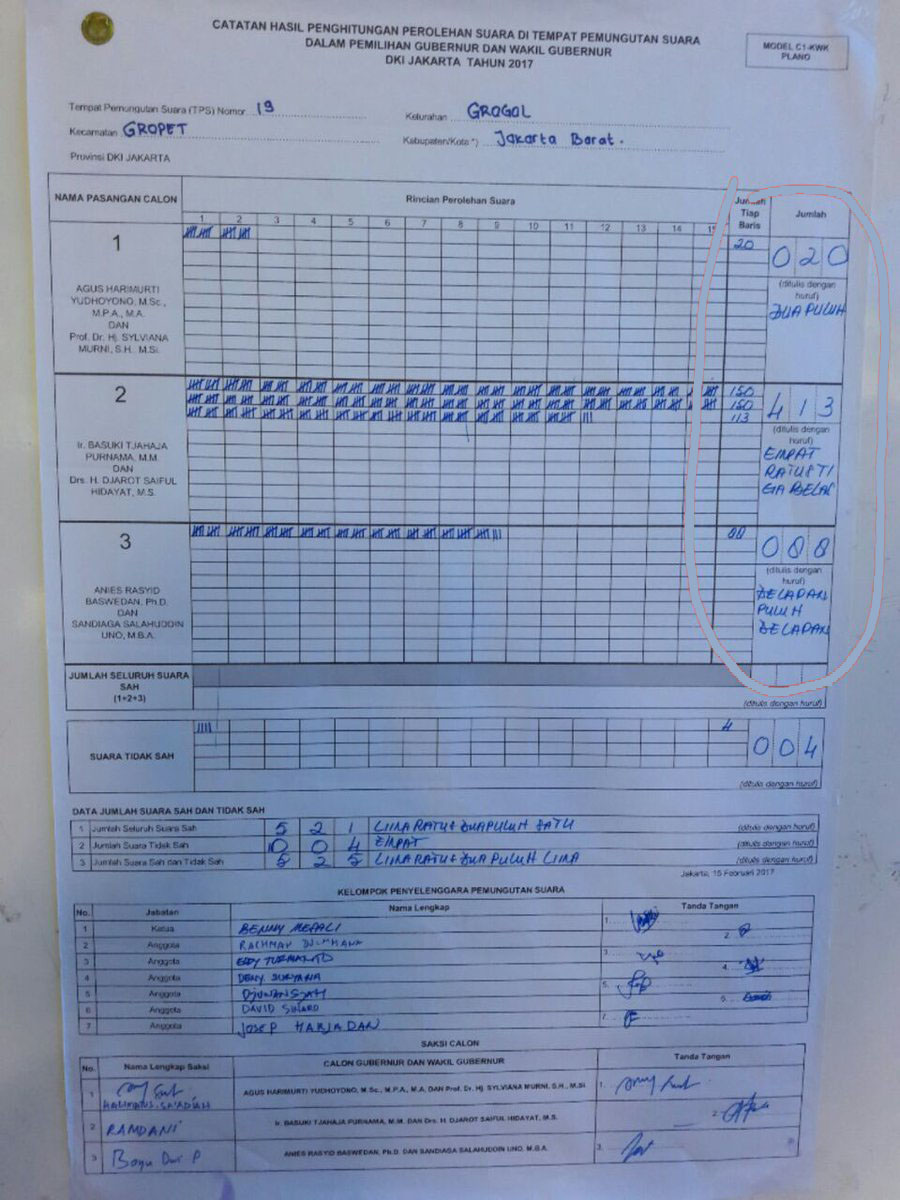 CATATAN HASIL PENGHITUNGAN PEROLEHAN SUARA DI TEMPAT PEMUNGUTAN SUARA
DALAM PEMILIHAN GUBERNUR DAN WAKIL GUBERNUR
DKI JAKARTA TAHUN 2017
MODEL C1-KWK
PLANO
Tempat Pemungutan Suara (TPS) Nomor 19
Kelurahan GROGOL
Kecamatan GROPET
Kabupaten/Kota *) Jakarta Barat.
Provinsi DKI JAKARTA
NAMA PASANGAN CALON
Rincian Perolehan Suara
1 2 3 4 5 6 7 8 9 10 11 12 13 14 15
Jumlah
Tiap
Baris
Jumlah
1
AGUS HARIMURTI
YUDHOYONO, M.Sc.,
M.P.A., M.A.
DAN
Prof. Dr. Hj. SYLVIANA
MURNI, S.H. M.Si.
20
020
(ditulis dengan
huruf)
DUA PULUH
2
Ir. BASUKI TJAHAJA
PURNAMA, M.M
DAN
Drs. H. DJAROT SAIFUL
HIDAYAT, M.S.
150
150
113
413
(ditulis dengan
huruf)
EMPAT
RATUS TI
GA BELAS
3
ANIES RASYID
BASWEDAN, Ph.D.
DAN
SANDIAGA SALAHUDDIN
UNO, M.B.A.
88
088
(ditulis dengan
huruf)
DELAPAN
PULUH
DELAPAN
JUMLAH SELURUH SUARA
SAH
(1+2+3)
(ditulis dengan huruf)
SUARA TIDAK SAH
4
004
(ditulis dengan huruf)
DATA JUMLAH SUARA SAH DAN TIDAK SAH
1 Jumlah Seluruh Suara Sah 5 2 1 LIMA RATUS DUA PULUH SATU (ditulis dengan huruf)
2 Jumlah Suara Tidak Sah 0 0 4 EMPAT (ditulis dengan huruf)
3 Jumlah Suara Sah dan Tidak Sah 5 2 5 LIMA RATUS DUA PULUH LIMA (ditulis dengan huruf)
Jakarta, 15 Februari 2017
KELOMPOK PENYELENGGARA PEMUNGUTAN SUARA
No. Jabatan Nama Lengkap Tanda Tangan
1 Ketua BENNY 1.
2 Anggota RACHMAN 2.
3 Anggota EDDY 3.
4 Anggota DENY SURYANA 4.
5 Anggota 5.
6 Anggota DAVID 6.
7 Anggota JOSEP 7.
SAKSI CALON
No. Nama Lengkap Saksi CALON GUBERNUR DAN WAKIL GUBERNUR Tanda Tangan
1 AGUS HARIMURTI YUDHOYONO, M.Sc., M.P.A., M.A, DAN Prof. Dr. Hj. SYLVIANA MURNI, S.H., M.Si 1.
2 RAMDANI Ir. BASUKI TJAHAJA PURNAMA, M.M. DAN Drs. H. DJAROT SAIFUL HIDAYAT, M.S. 2.
3 Bayu Dwi P ANIES RASYID BASWEDAN, Ph.D. DAN SANDIAGA SALAHUDDIN UNO, M.B.A. 3.